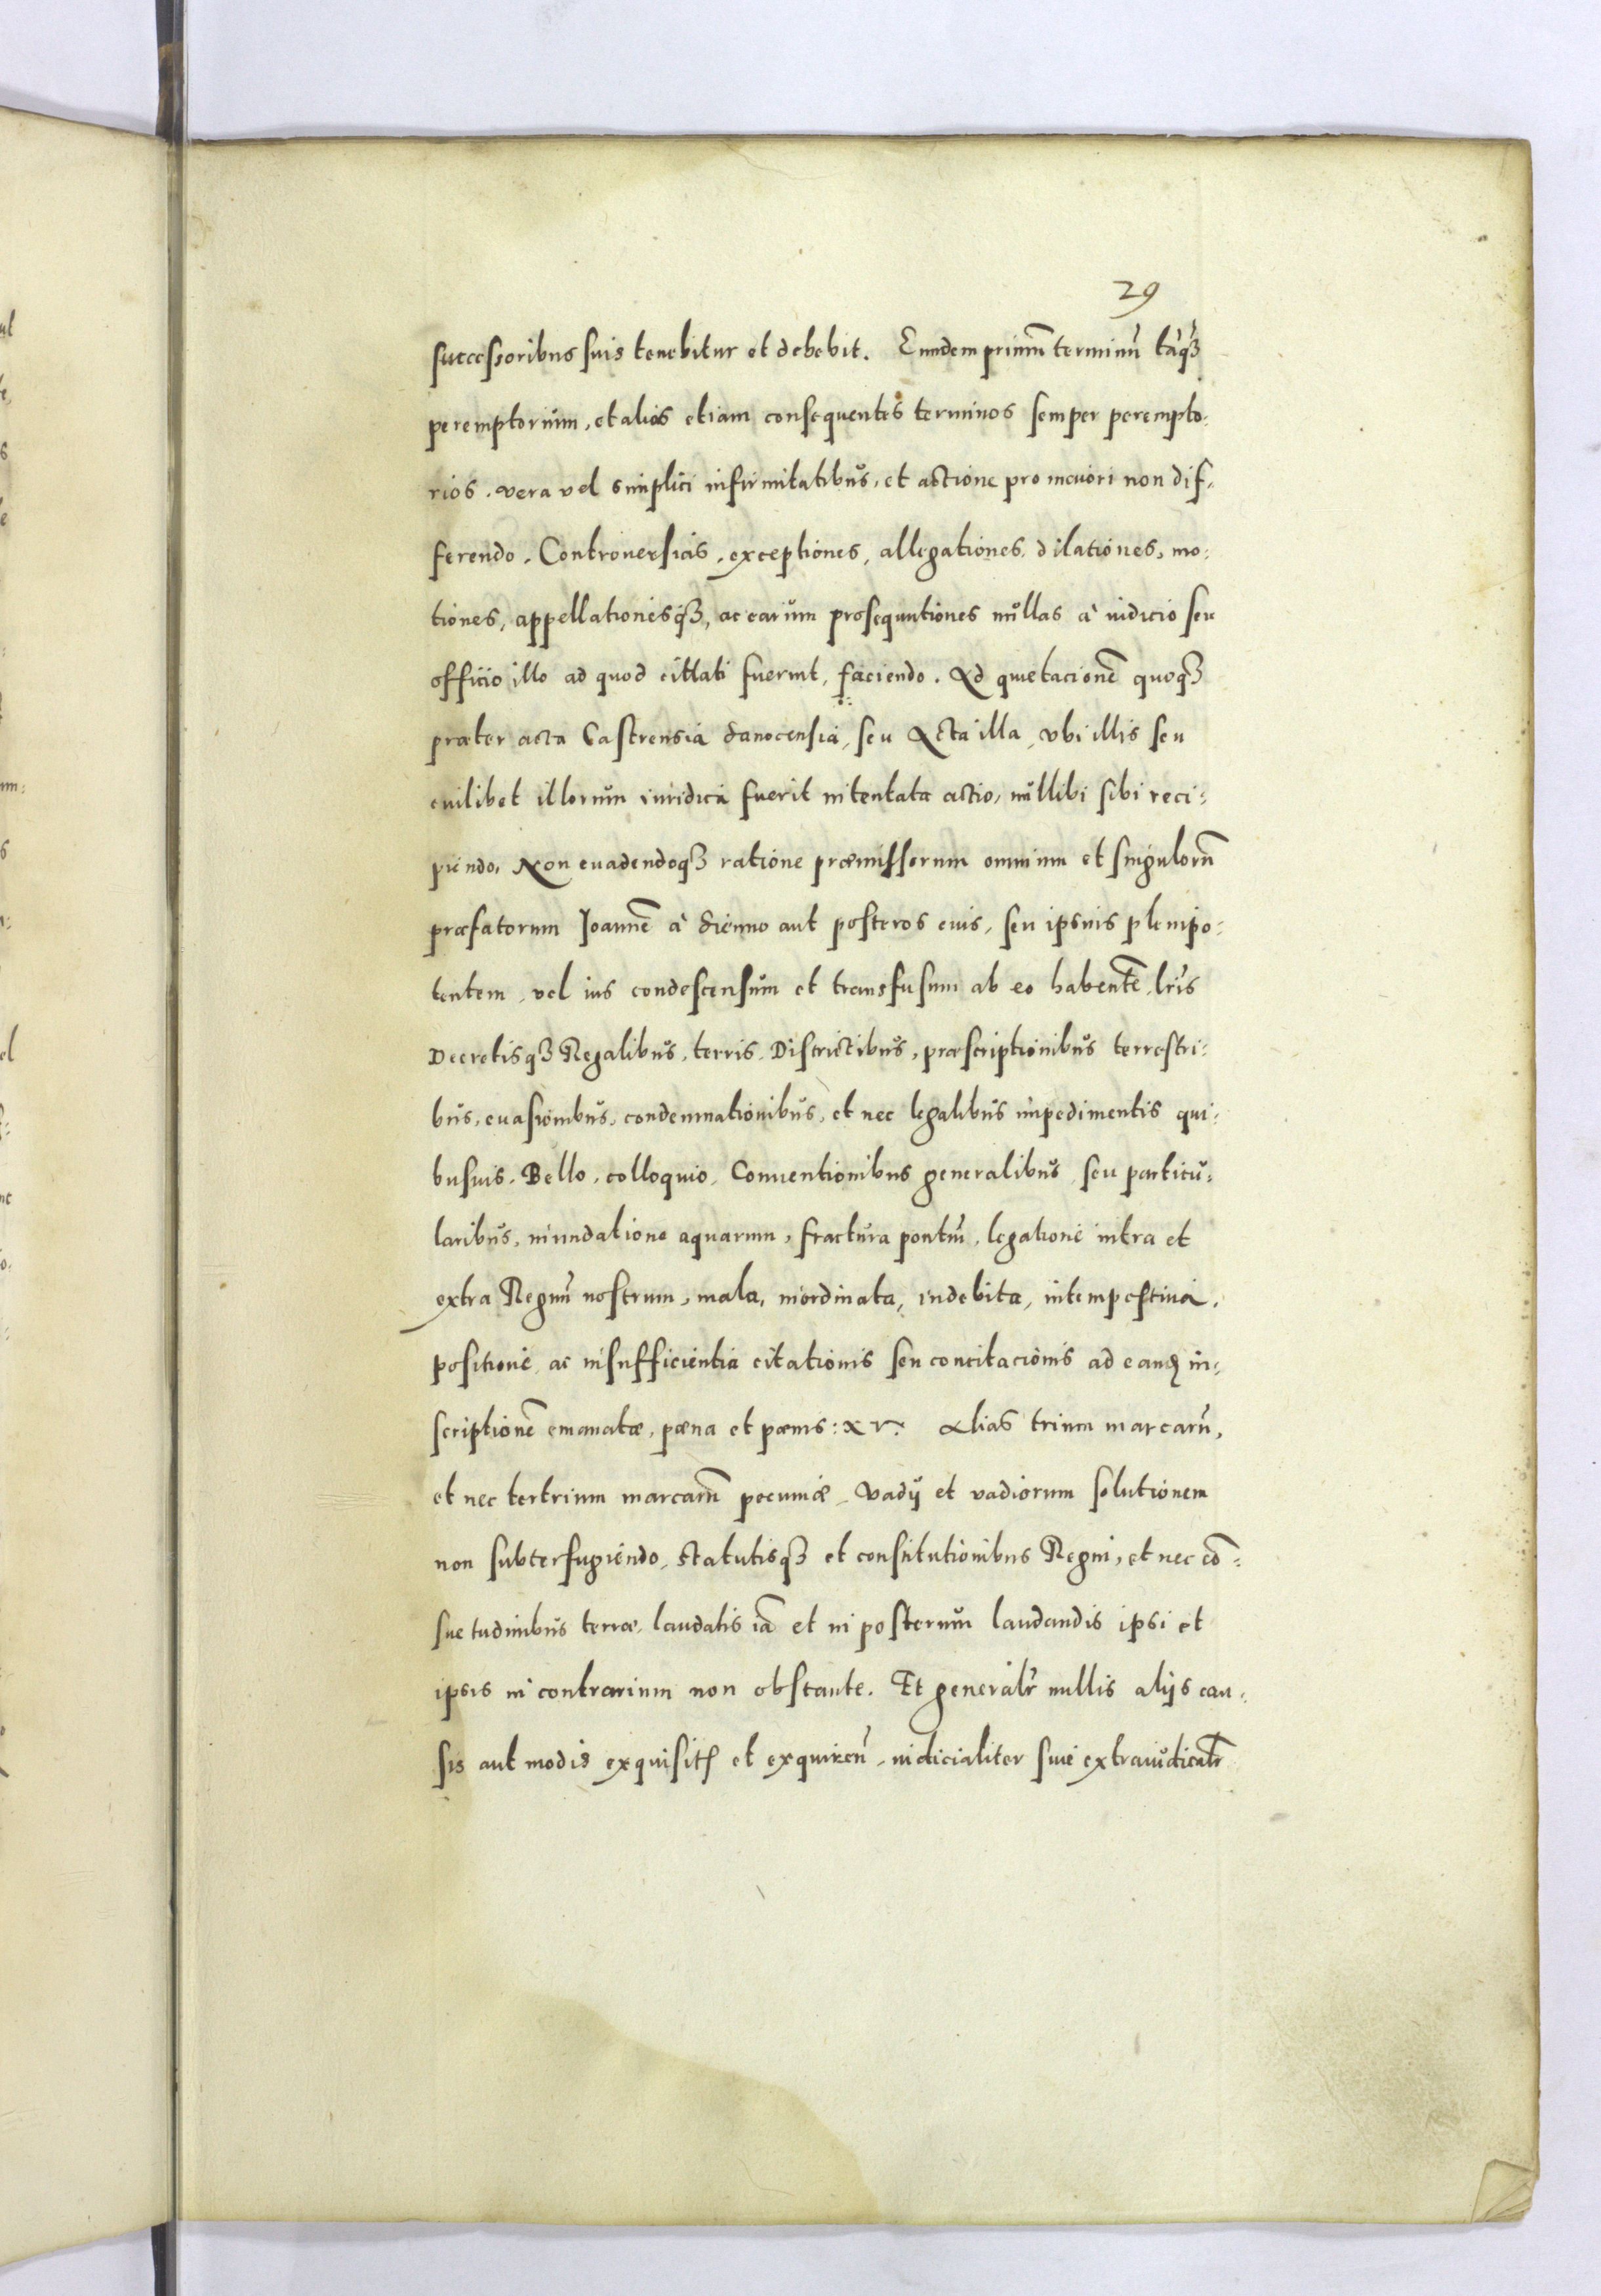 29
successoribus suis tenebitur et debebit. Eundem primũ terminũ tãq́ꝫ
peremptorium, et alios etiam consequentes terminos semper perempto:
rios, vera vel simplici infirmitatibus, et actione pro maiori non dif:
ferendo. Controuersias, exceptiones, allegationes, dilationes, mo:
tiones, appellationesq́ꝫ, ac earum prosequutiones nullas à iudicio seu
officio illo ad quod cittati fuerint, faciendo. Ad quietacionẽ quoqꝫ
præter acta Castrensia Sanocensia, seu Acta illa, vbi illis seu
cuilibet illorum iuridica fuerit intentata actio, nullibi sibi reci:
piendo, Non euadendoqꝫ ratione præmissorum omnium et singulorũ
præfatorum Joannẽ à Sienno aut posteros eius, seu ipsius plenipo:
tentem, vel ius condescensum et transfusum ab eo habentẽ, lr̃is
Decretisqꝫ Regalibus, terris, Districtibus, præscriptionibus terrestri:
bus, euasionibus, condemnationibus, et nec legalibus impedimentis qui:
busuis, Bello, colloquio, Conuentionibus generalibus, seu particu:
laribus, inundatione aquarum, fractura pontiũ, legatione intra et
extra Regnũ nostrum, mala, inordinata, indebita, intempestiua,
positione, ac insufficientia citationis seu concitacionis ad eandẽ in:
scriptionẽ emanatæ, pæna et pænis: xv. Alias trium marcarũ,
et nec ter trium marcarũ pecuniæ, vadij et vadiorum solutionem
non subterfugiendo, statutisqꝫ et constitutionibus Regni, et nec cõ:
suetudinibus terræ, laudatis iã et in posterum laudandis ipsi et
ipsis in contrarium non obstante. Et generalr̃ nullis alijs cau:
sis aut modis exquisitꝭ et exquirenẽ, iudicialiter siue extraiudicialr̃